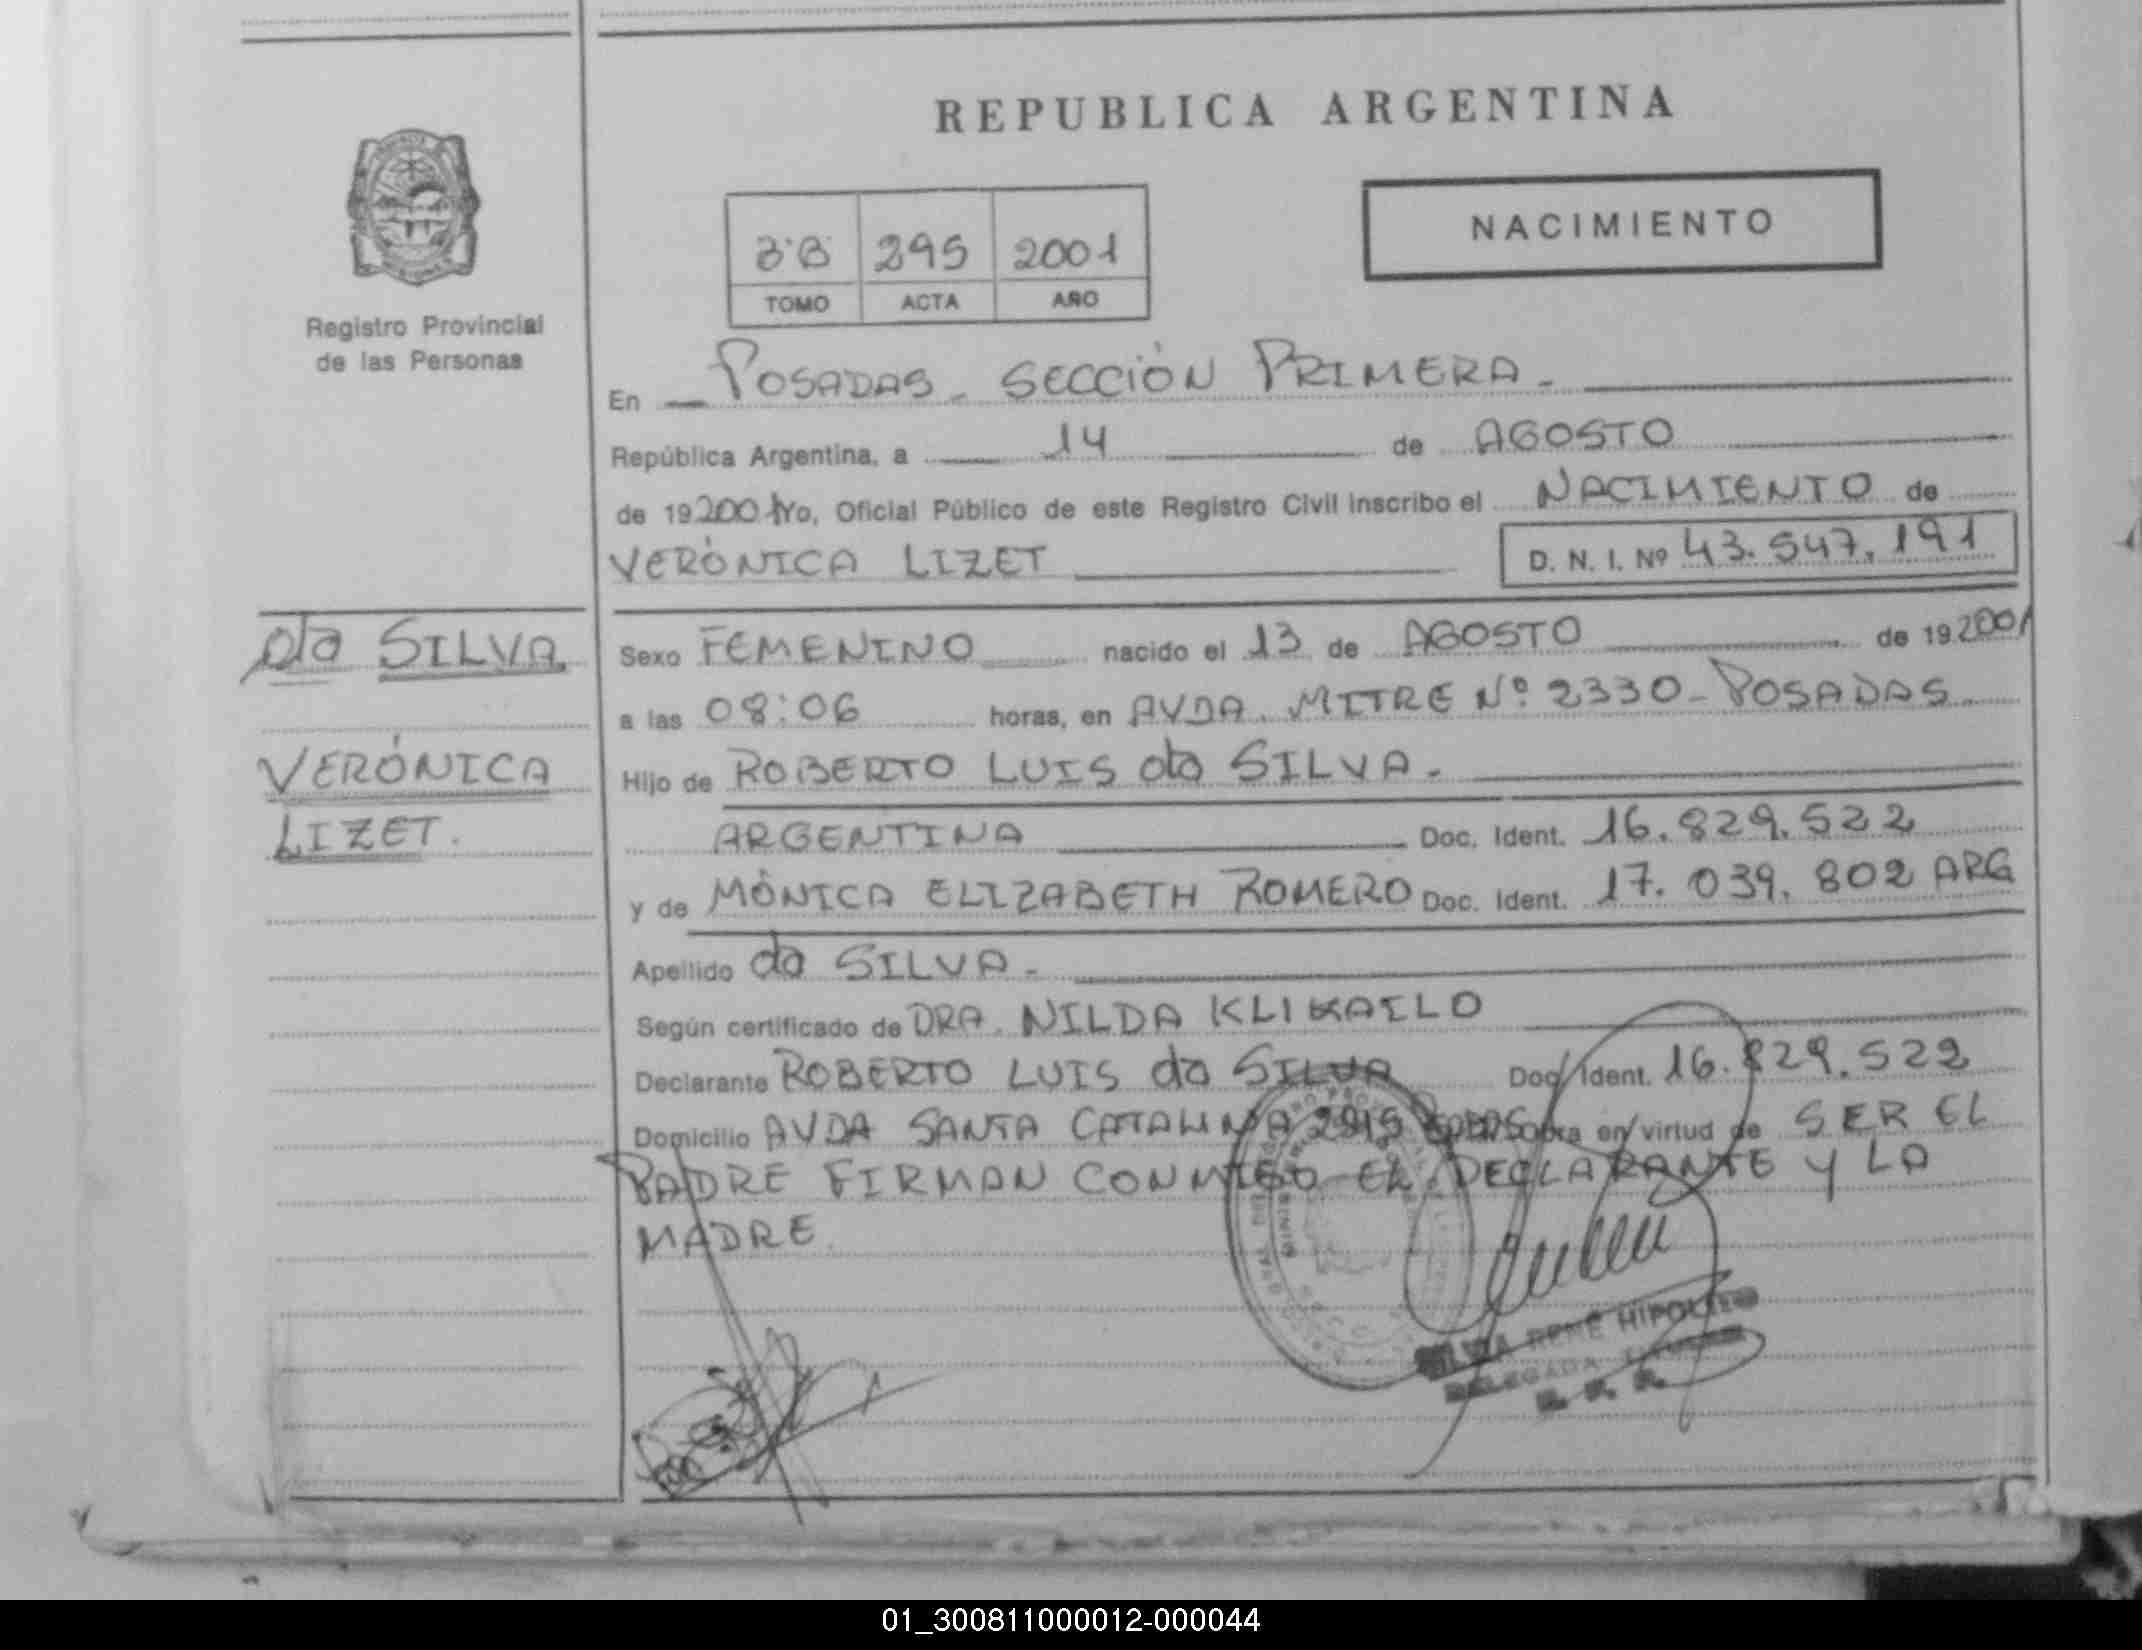 REPUBLICA ARGENTINA
NACIMIENTO
3·B 295 2001
TOMO ACTA AÑO
Registro Provincial
de las Personas
En POSADAS - SECCIÓN PRIMERA.
República Argentina, a 14 de AGOSTO
de 192001 Yo, Oficial Público de este Registro Civil inscribo el NACIMIENTO de
VERÓNICA LIZET D. N. I. Nº 43.547.191
da SILVA
VERÓNICA
LIZET.
Sexo FEMENINO nacido el 13 de AGOSTO de 192001
a las 08:06 horas, en AVDA. MITRE Nº 2330 - POSADAS
Hijo de ROBERTO LUIS da SILVA.
ARGENTINA Doc. Ident. 16.829.522
y de MÓNICA ELIZABETH ROMERO Doc. Ident. 17.039.802 ARG
Apellido da SILVA.
Según certificado de DRA. NILDA
Declarante ROBERTO LUIS da SILVA Doc. Ident. 16.829.522
Domicilio AVDA SANTA CATALINA obra en virtud de SER EL
PADRE FIRMAN CONMIGO EL DECLARANTE Y LA
MADRE
RENÉ HIPOLITO
DELEGADA
01_300811000012-000044